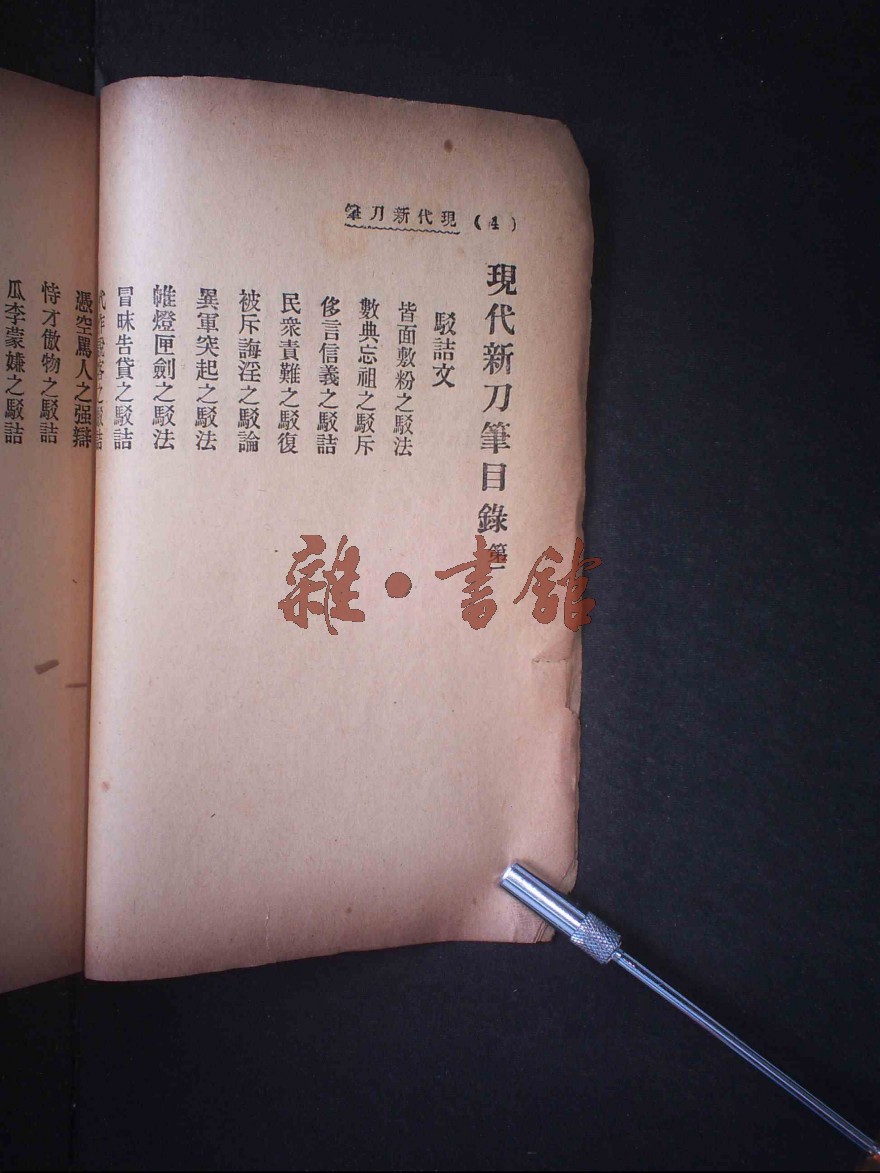 (4) 現代新刀筆
現代新刀筆目錄 第一
駁詰文
皆面敷粉之駁法
數典忘祖之駁斥
侈言信義之駁詰
民衆責難之駁復
被斥誨淫之駁論
異軍突起之駁法
帷燈匣劍之駁法
冒昧告貸之駁詰
憑空罵人之强辯
恃才傲物之駁詰
瓜李蒙嫌之駁詰
雜·書館